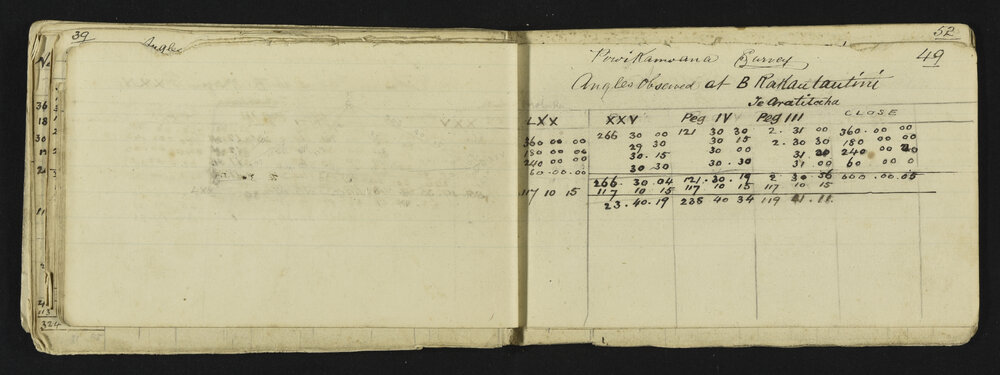 39
Angles
No
36
18
30
19
21
11
324
52
49
Survey
Angles Observed at B Rakautautini
Te Aratitaha
LXX XXV Peg IV Peg III CLOSE
360 00 00 266 30 00 121 30 30 2. 31 00 360.00 00
180 00 00 29 30 30 15 2. 30 30 180 00 00
240 00 00 30.15 30 00 31 240 00
60.00.00 30 30 30.30 31.00 60 00 00
266. 30.04 121.30.19 2 30
117 10 15 117 10 15 117 10 15 117 10 15
23.40.19 238 40 34 119